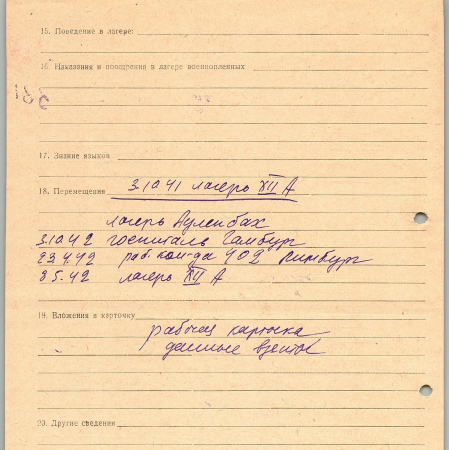 15. Поведение в лагере:
16. Наказания и поощрения в лагере военнопленных
17. Знание языков
18. Перемещения 3.10 41 лагерь XII А
лагерь Ауленбах
3.10 42 госпиталь Гамбург
23.4.42 раб. ком-да 402 Лимбург
8 5.42 лагерь XII А
19. Вложения в карточку
рабочая карточка
данные взяты
20. Другие сведения